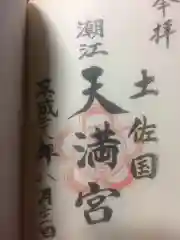 奉拝
土佐国
潮江
天満宮
平成二八年八月二一日